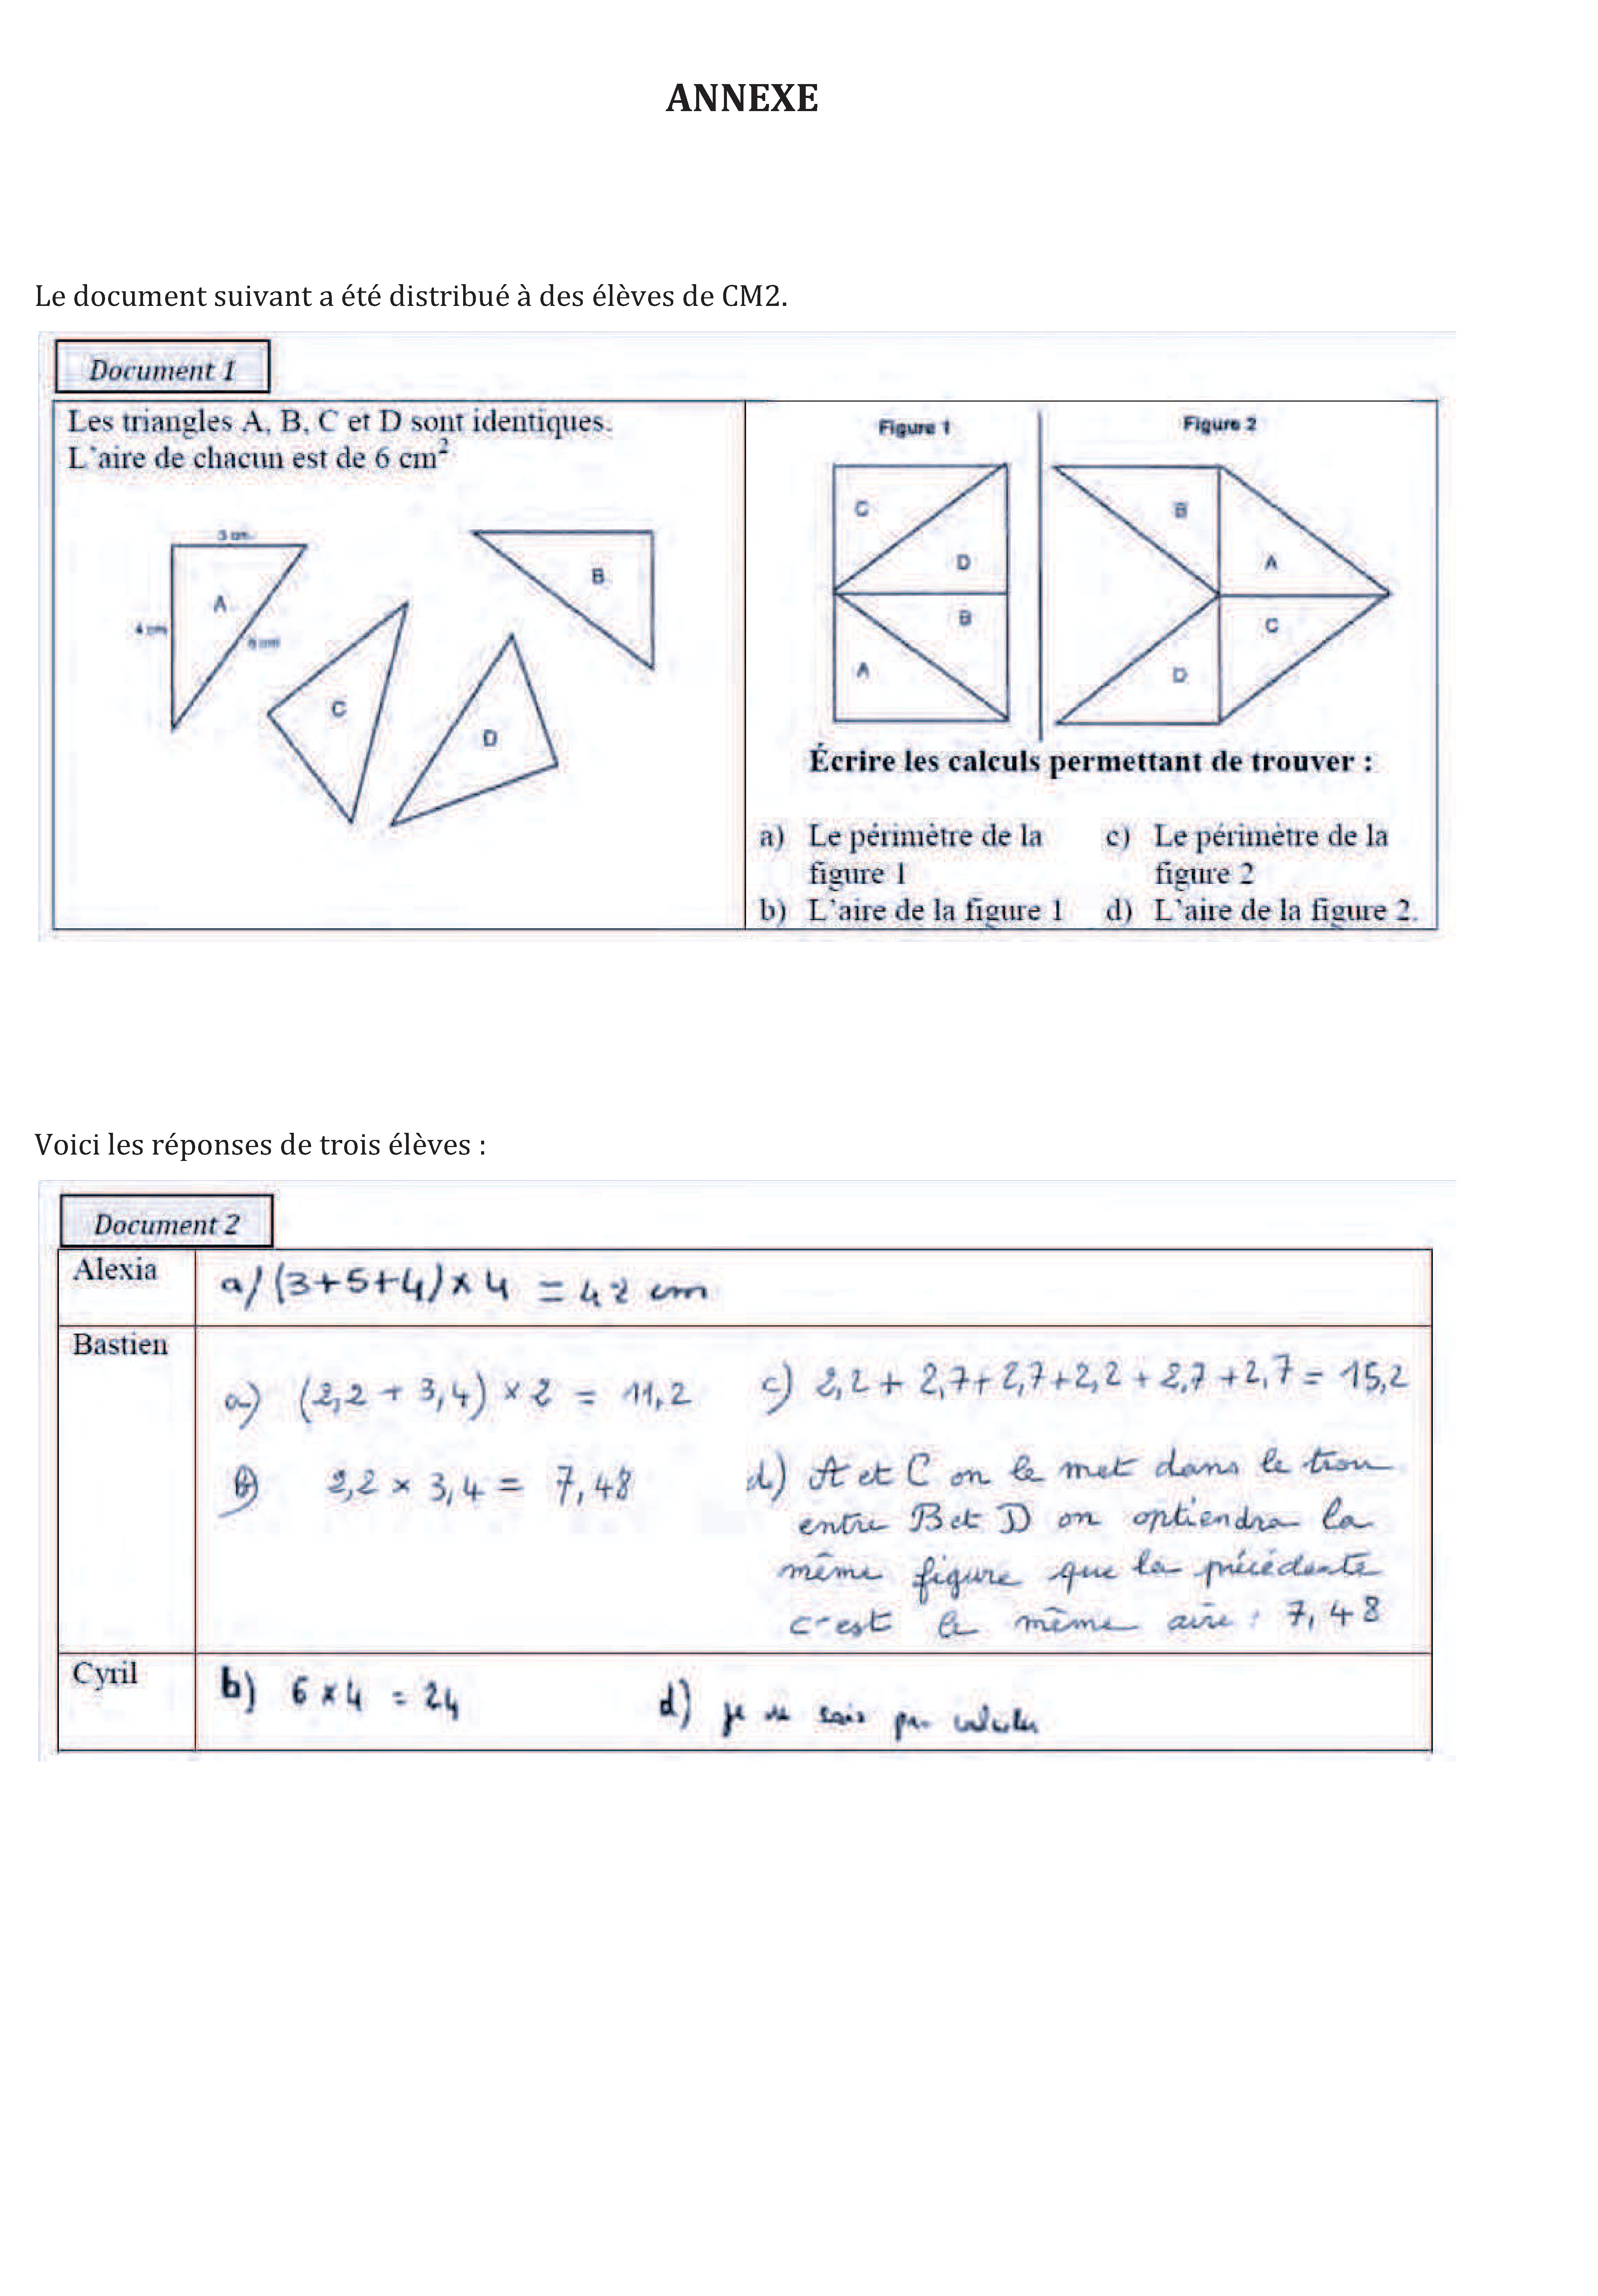 ANNEXE
Le document suivant a été distribué à des élèves de CM2.
Document 1
Les triangles A, B, C et D sont identiques.
L'aire de chacun est de 6 cm²
3 cm
A
4 cm
B
C
D
Figure 1
C
D
B
A
Figure 2
B
A
C
D
Écrire les calculs permettant de trouver :
a) Le périmètre de la
figure 1
b) L'aire de la figure 1
c) Le périmètre de la
figure 2
d) L'aire de la figure 2.
Voici les réponses de trois élèves :
Document 2
Alexia
a/ (3+5+4) x 4 = 42 cm
Bastien
a) (2,2 + 3,4) x 2 = 11,2
b) 2,2 x 3,4 = 7,48
c) 2,2 + 2,7 + 2,7 + 2,2 + 2,7 + 2,7 = 15,2
d) A et C on le met dans le trou
entre B et D on optiendra la
même figure que la précédente
c'est la même aire : 7,48
Cyril
b) 6 x 4 = 24
d) je ne sais pas calculer